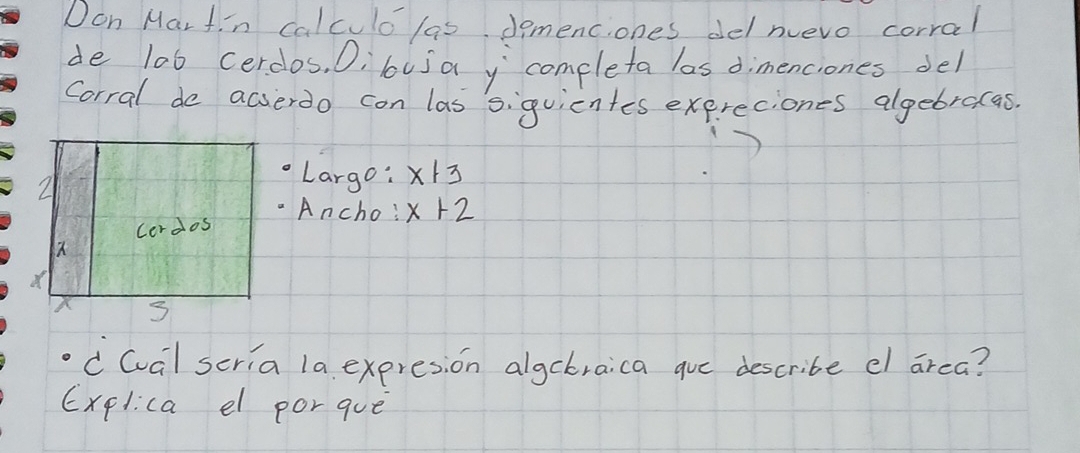 Don Martín calculó las demenciones del nuevo corral
de lob cerdos. Dibuja y completa las dimenciones del
Corral de acuerdo con las siguientes expreciones algebracas.
• Largo: x+3
• Ancho: x+2
2
cerdos
x
x
x
5
• ¿Cuál sería la expresión algebraica que describe el área?
Explica el por qué